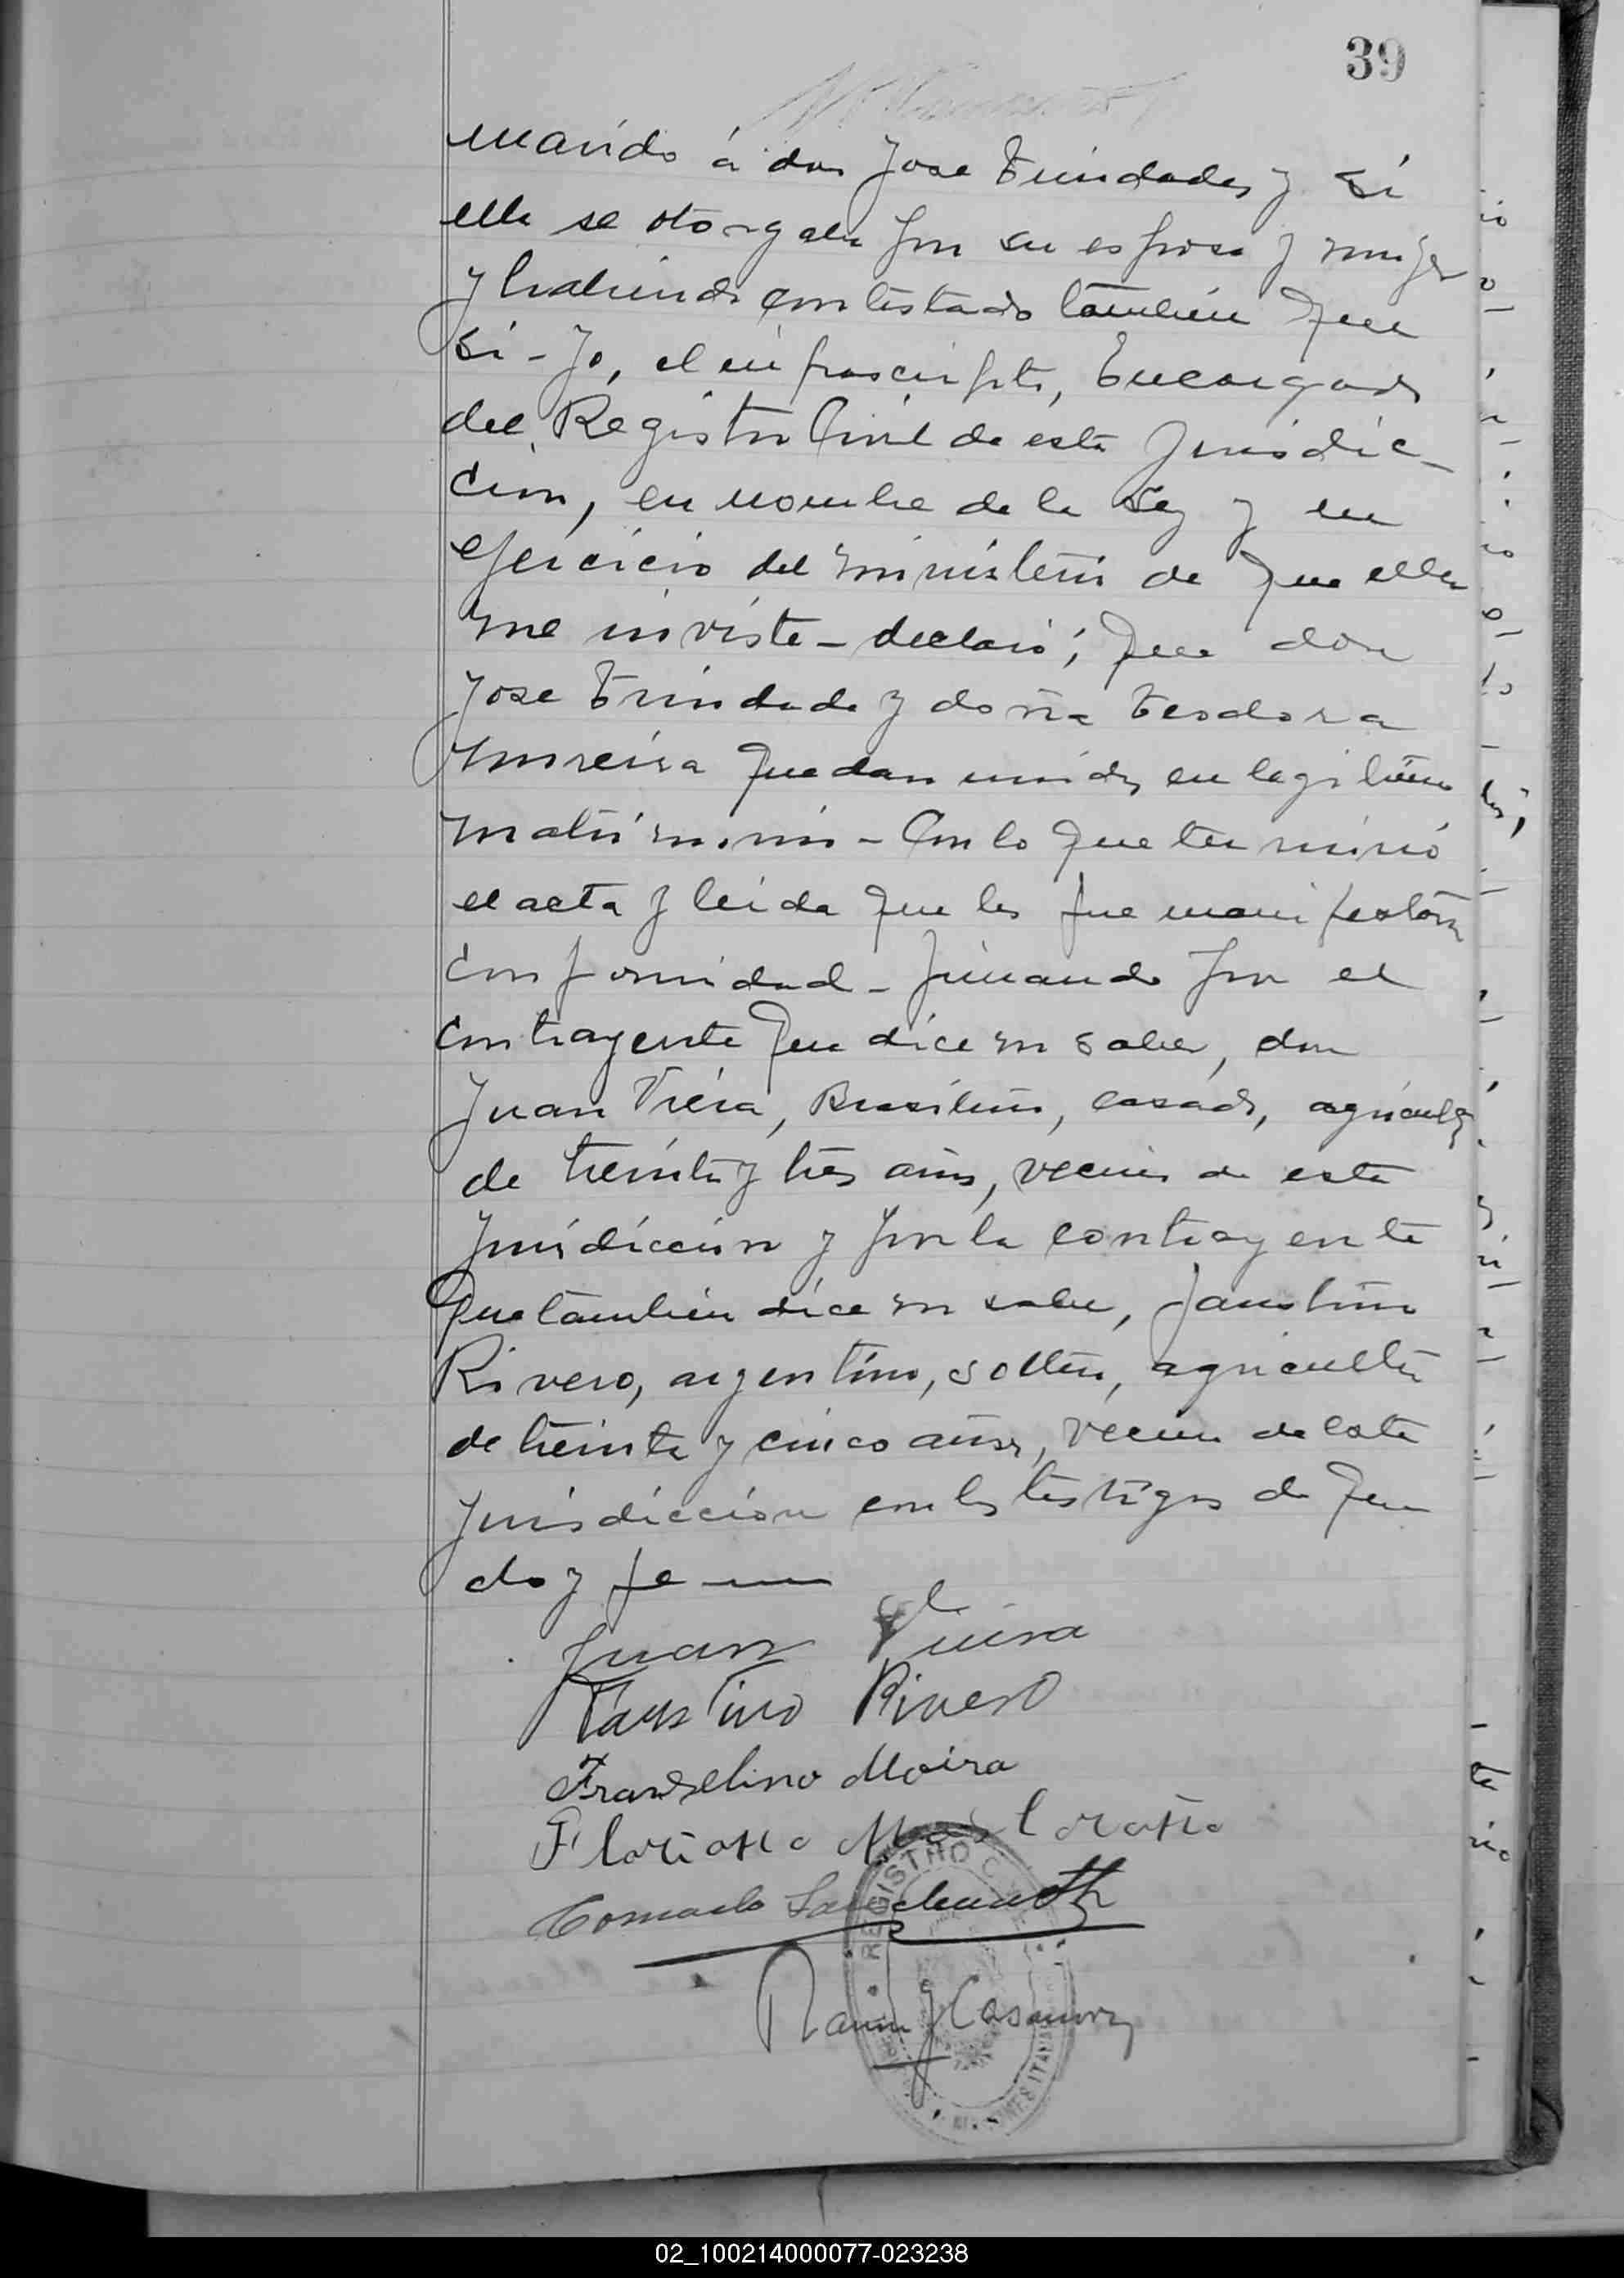 39
marido á don Jose Trindades y si
ella se otorgaba por su esposa y mujer
y habiendo contestado tambien que
si - Yo, el infrascripto, Encargado
del Registro Civil de esta Jurisdic-
cion, en nombre de la Ley y en
ejercicio del ministerio de que ella
me inviste - declaro; que don
Jose Trindade y doña Teodora
Moreira quedan unidos en legitimo
matrimonio - Con lo que terminó
el acta y leida que les fue manifestaron
conformidad - firmando por el
contrayente que dice no saber, don
Juan Viera, Brasilero, casado, agricultor
de treinta y tres años, vecino de esta
Jurisdiccion y por la contrayente
que tambien dice no saber, Faustino
Rivero, argentino, soltero, agricultor
de treinta y cinco años, vecino de esta
Jurisdiccion con los testigos de que
doy fe
Juan Vieira
Faustino Rivero
Franselino Moira
Floriano
REGISTRO
Ramon J Casanova
02_100214000077-023238